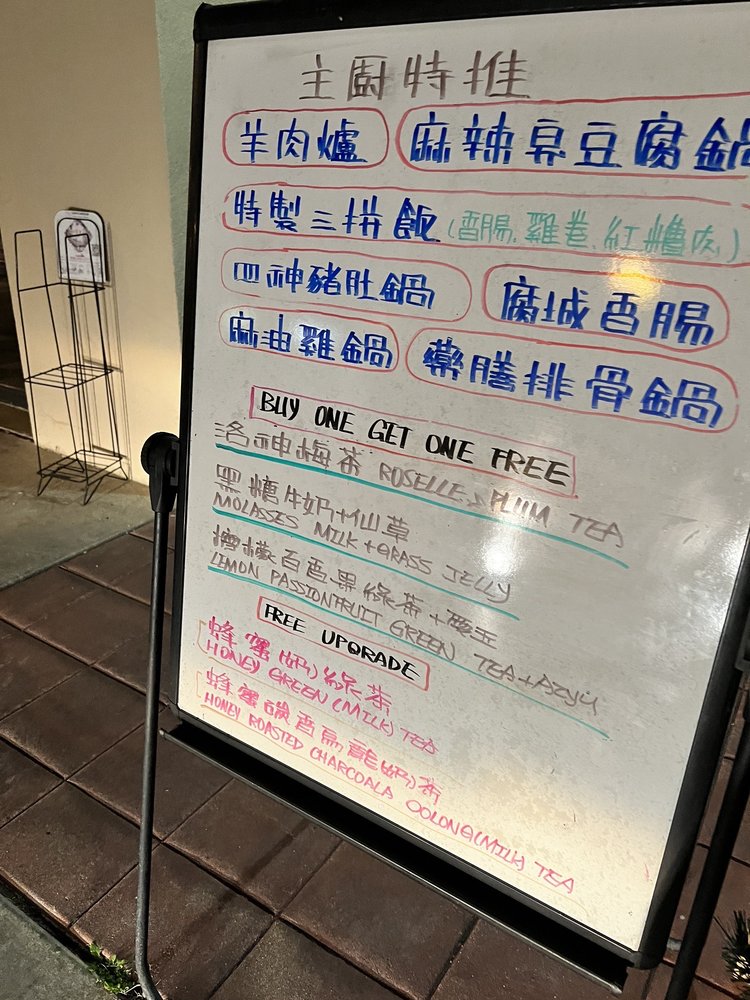 主廚特推
羊肉爐 麻辣臭豆腐鍋
特製三拼飯 (香腸.雞卷.紅糟肉)
四神豬肚鍋 腐城香腸
麻油雞鍋 藥膳排骨鍋
BUY ONE GET ONE FREE
洛神梅茶 ROSELLE & PLUM TEA
黑糖牛奶+仙草
MOLASSES MILK+GRASS JELLY
檸檬百香果綠茶+愛玉
LEMON PASSIONFRUIT GREEN TEA+AIYU
FREE UPGRADE
蜂蜜(奶)綠茶
HONEY GREEN (MILK) TEA
蜂蜜碳香烏龍(奶)茶
HONEY ROASTED CHARCOALA OOLONG(MILK) TEA